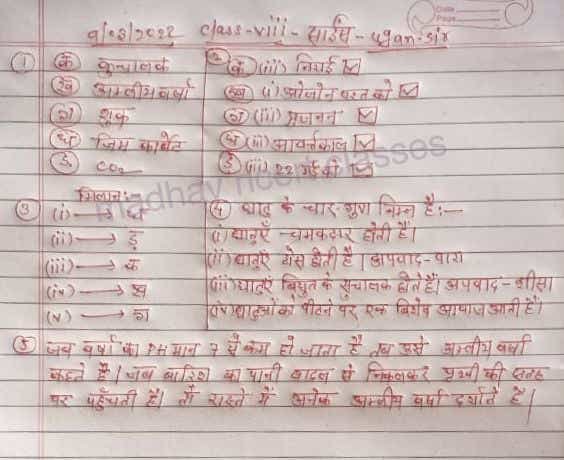 Date
Page
9/08/2022 class-viii- साईंस - ygan.sir
① क कुचालक
ख अम्लीय वर्षा
ग शुक्र
घ जिम कार्बेट
ङ CO₂
② क (iii) निराई ☑
ख (i) ओजोन परत को ☑
ग (iii) प्रजनन ☑
घ (ii) आवर्तकाल ☑
ङ (ii) 22 मई को ☑
③ मिलान:-
(i) → घ
(ii) → ङ
(iii) → क
(iv) → ख
(v) → ग
④ धातु के चार गुण निम्न है:—
(i) धातुएँ चमकदार होती हैं।
(ii) धातुएँ ठोस होती हैं। अपवाद - पारा
(iii) धातुएँ विद्युत के सुचालक होते हैं। अपवाद - शीसा
(iv) धातुओं को पीटने पर एक विशेष आवाज आती हैं।
⑤ जब वर्षा का PH मान 7 से कम हो जाता है तब उसे अम्लीय वर्षा
कहते हैं। जब बारिश का पानी बादल से निकलकर पृथ्वी की सतह
पर पहुँचती है। तो रास्ते में अनेक अम्लीय वर्षा दर्शाते हैं।
madhav ncert classes